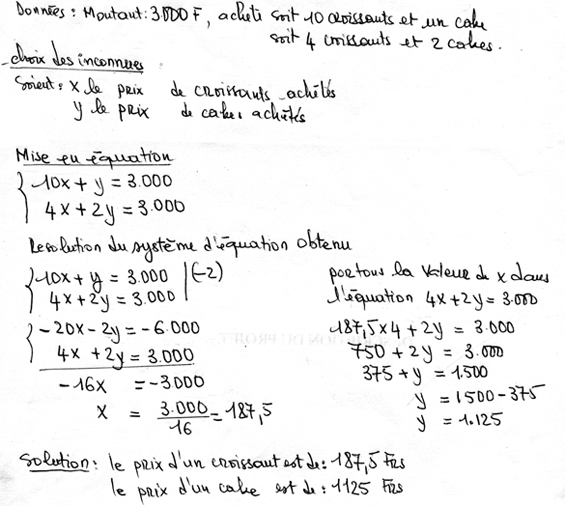 Données : Montant : 3.000 F, acheté soit 10 croissants et un cake
soit 4 croissants et 2 cakes.
- choix des inconnues
Soient : x le prix de croissants achétés
y le prix de cakes achétés
Mise en équation
10x + y = 3.000
4x + 2y = 3.000
Resolution du système d'équation obtenu
10x + y = 3.000 | (-2)
4x + 2y = 3.000
-20x - 2y = -6.000
4x + 2y = 3.000
-16x = -3000
x = 3.000/16 = 187,5
portons la valeur de x dans
l'équation 4x + 2y = 3.000
187,5 x 4 + 2y = 3.000
750 + 2y = 3.000
375 + y = 1.500
y = 1500 - 375
y = 1.125
Solution : le prix d'un croissant est de : 187,5 Frs
le prix d'un cake est de : 1125 Frs